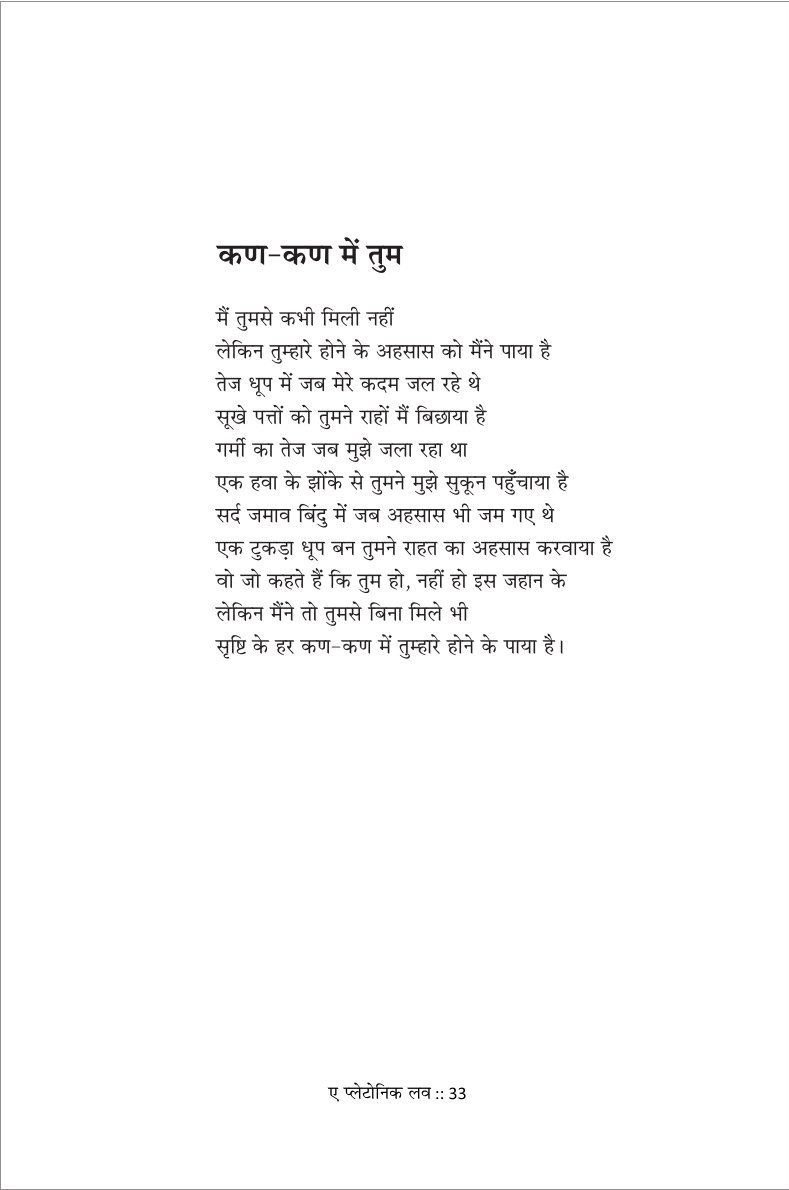 कण-कण में तुम
मैं तुमसे कभी मिली नहीं
लेकिन तुम्हारे होने के अहसास को मैंने पाया है
तेज धूप में जब मेरे कदम जल रहे थे
सूखे पत्तों को तुमने राहों मैं बिछाया है
गर्मी का तेज जब मुझे जला रहा था
एक हवा के झोंके से तुमने मुझे सुकून पहुँचाया है
सर्द जमाव बिंदु में जब अहसास भी जम गए थे
एक टुकड़ा धूप बन तुमने राहत का अहसास करवाया है
वो जो कहते हैं कि तुम हो, नहीं हो इस जहान के
लेकिन मैंने तो तुमसे बिना मिले भी
सृष्टि के हर कण-कण में तुम्हारे होने के पाया है।
ए प्लेटोनिक लव :: 33